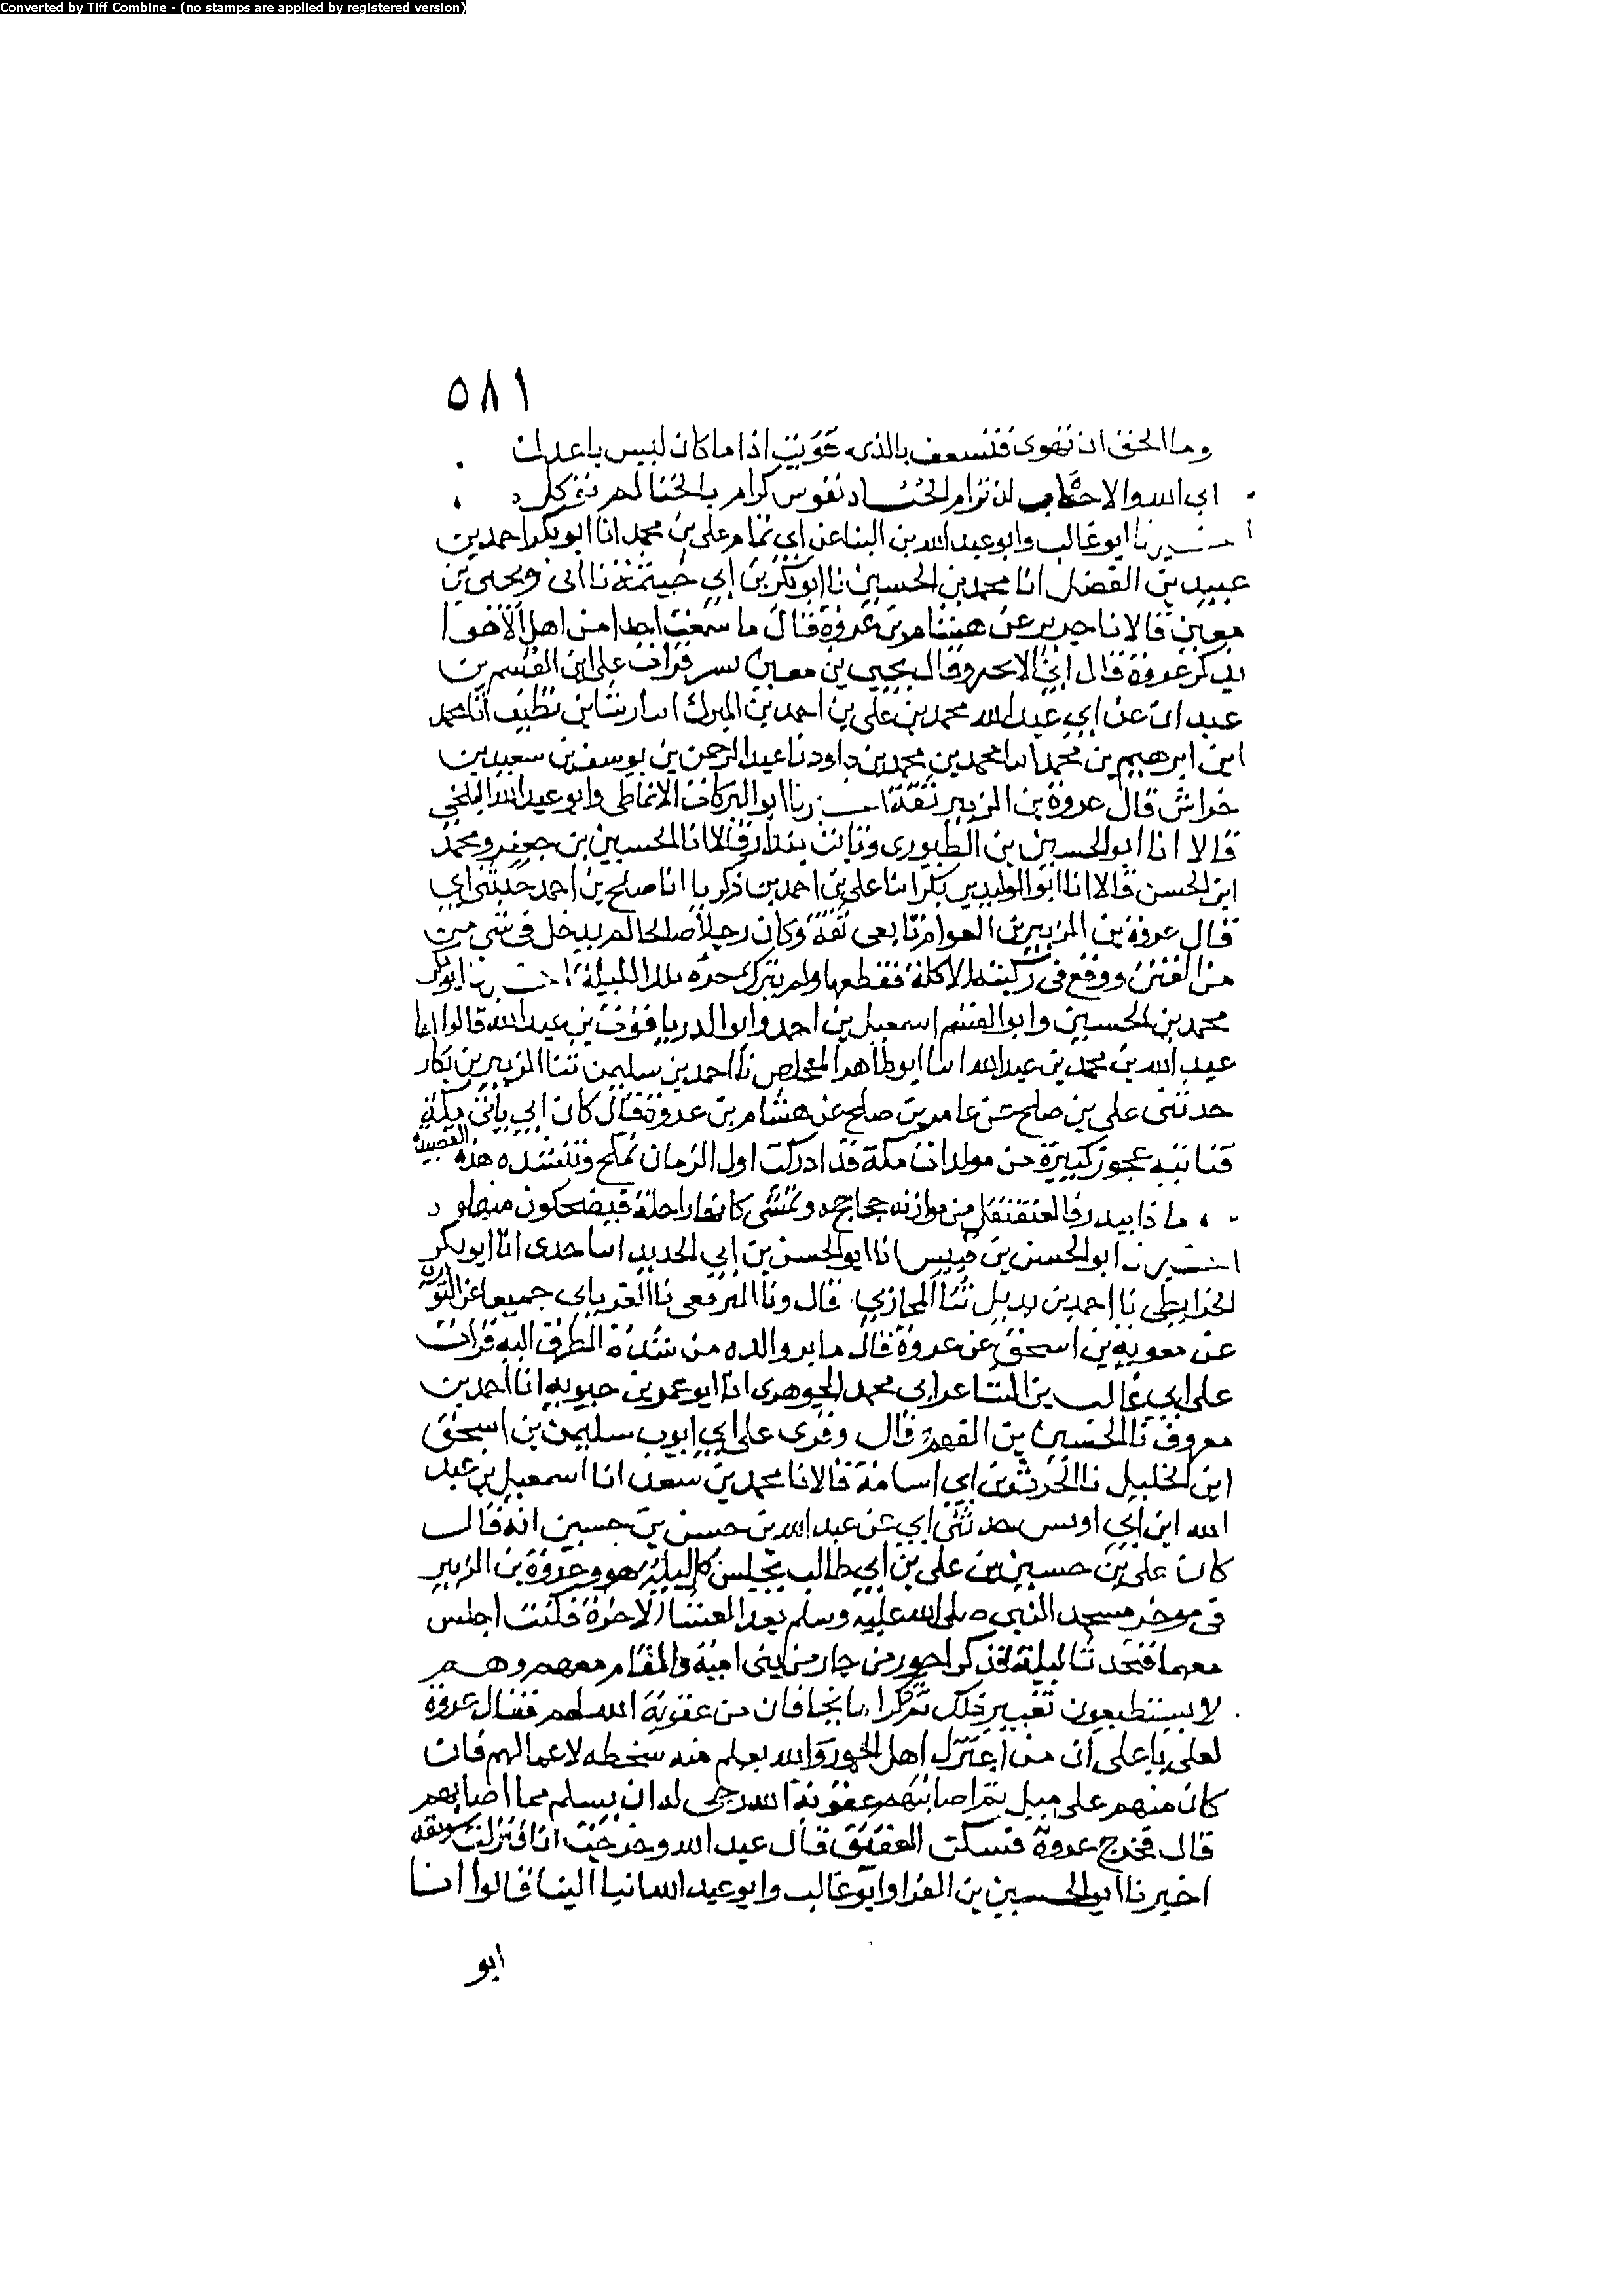 Converted by Tiff Combine - (no stamps are applied by registered version)
٥٨١
وما الحق ان تهوى فتسعف بالذى هويت اذا ما كان ليس باعدل
ابى الله والاحساب لن ترام الخنا نفوس كرام بالخنا لم توكل
اخبرنا ابو غالب وابو عبد الله بن البنا عن ابي تمام علي بن محمد انا ابو بكر احمد بن
عبيد بن الفضل انا محمد بن الحسين نا ابو بكر بن ابي خيثمة نا ابى ويحيى بن
معين قالا نا جرير عن هشام بن عروة قال ما سمعت احدا من اهل الاهوا
يذكر عروة قال ابي الا بخير وقال يحيى بن معين بسر قرات على ابن القسم بن
عبدان عن ابي عبد الله محمد بن علي بن احمد بن المبرك انا رشا بن نظيف انا محمد
ابن ابرهيم بن محمد انا محمد بن محمد بن داود نا عبد الرحمن بن يوسف بن سعيد بن
خراش قال عروة بن الزبير ثقة اخبرنا ابو البركات الانماطى وابو عبد الله البلخي
قالا انا ابو الحسين بن الطيورى وثابت بن بندار قالا انا الحسين بن جعفر ومحمد
ابن الحسن قالا انا ابو الوليد بن بكر انا علي بن احمد بن زكريا انا صلح بن احمد حدثنى ابي
قال عروة بن الزبير بن العوام تابعى ثقة وكان رجلا صالحا لم يدخل في شي من
من الفتن ووقع فى ركبته الاكلة فقطعها ولم يترك حزبه تلك الليلة اخبرنا ابو بكر
محمد بن الحسين وابو القسم اسمعيل بن احمد وابو الدر ياقوت بن عبد الله قالوا انا
عبد الله بن محمد بن عبد الله انا ابو طاهر المخلص نا احمد بن سليمن ثنا الزبير بن بكار
حدثنى علي بن صلح عن عامر بن صلح عن هشام بن عروة قال كان ابي ياتي مكة
فتاتيه عجوز كبيرة من مولدات مكة قد ادركت اول الزمان تمكح وتنشده هذه القصيدة
ماذا ببدر فالعقنقل من مرازبة جحاجح وتمشى كانها راحلة فيضحكون منها
اخبرنا ابو الحسن بن قبيس انا ابو الحسن بن ابي الحديد انا جدى انا ابو بكر
الخرايطى نا احمد بن بديل ثنا المحاربي قال ونا الترقفى نا الفريابى جميعا عن الثورى
عن معوية بن اسحق عن عروة قال ما بر والده من شد الطرف اليه قرات
على ابي غالب بن البنا عن ابى محمد الجوهرى انا ابو عمر بن حيويه انا احمد بن
معروف نا الحسين بن الفهم قال وقرى على ابي ايوب سليمن بن اسحق
ابن الخليل نا الحرث بن ابي اسامة قالا نا محمد بن سعد انا اسمعيل بن عبد
الله ابن ابي اويس حدثنى ابي عن عبد الله بن حسن بن حسين انه قال
كان علي بن حسين بن علي بن ابي طالب يجلس كل ليلة هو وعروة بن الزبير
فى موخر مسجد النبي صلى الله عليه وسلم بعد العشا الاخرة فكنت اجلس
معهما فتحدثا ليلة فذكرا جور من جار من بنى امية والمقام معهم وهم
لا يستطيعون تغيير ذلك ثم ذكرا ما يخافان من عقوبة الله لهم فقال عروة
لعلي يا علي ان من اعتزل اهل الجور والله يعلم منه سخطه لاعمالهم فان
كان منهم على ميل ثم اصابتهم عقوبة الله رجى له ان يسلم مما اصابهم
قال فخرج عروة فسكن العقيق قال عبد الله وخرجت انا فنزلت سويقة
اخبرنا ابو الحسين بن الفرا وابو غالب وابو عبد الله ابنا البنا قالوا انا
ابو